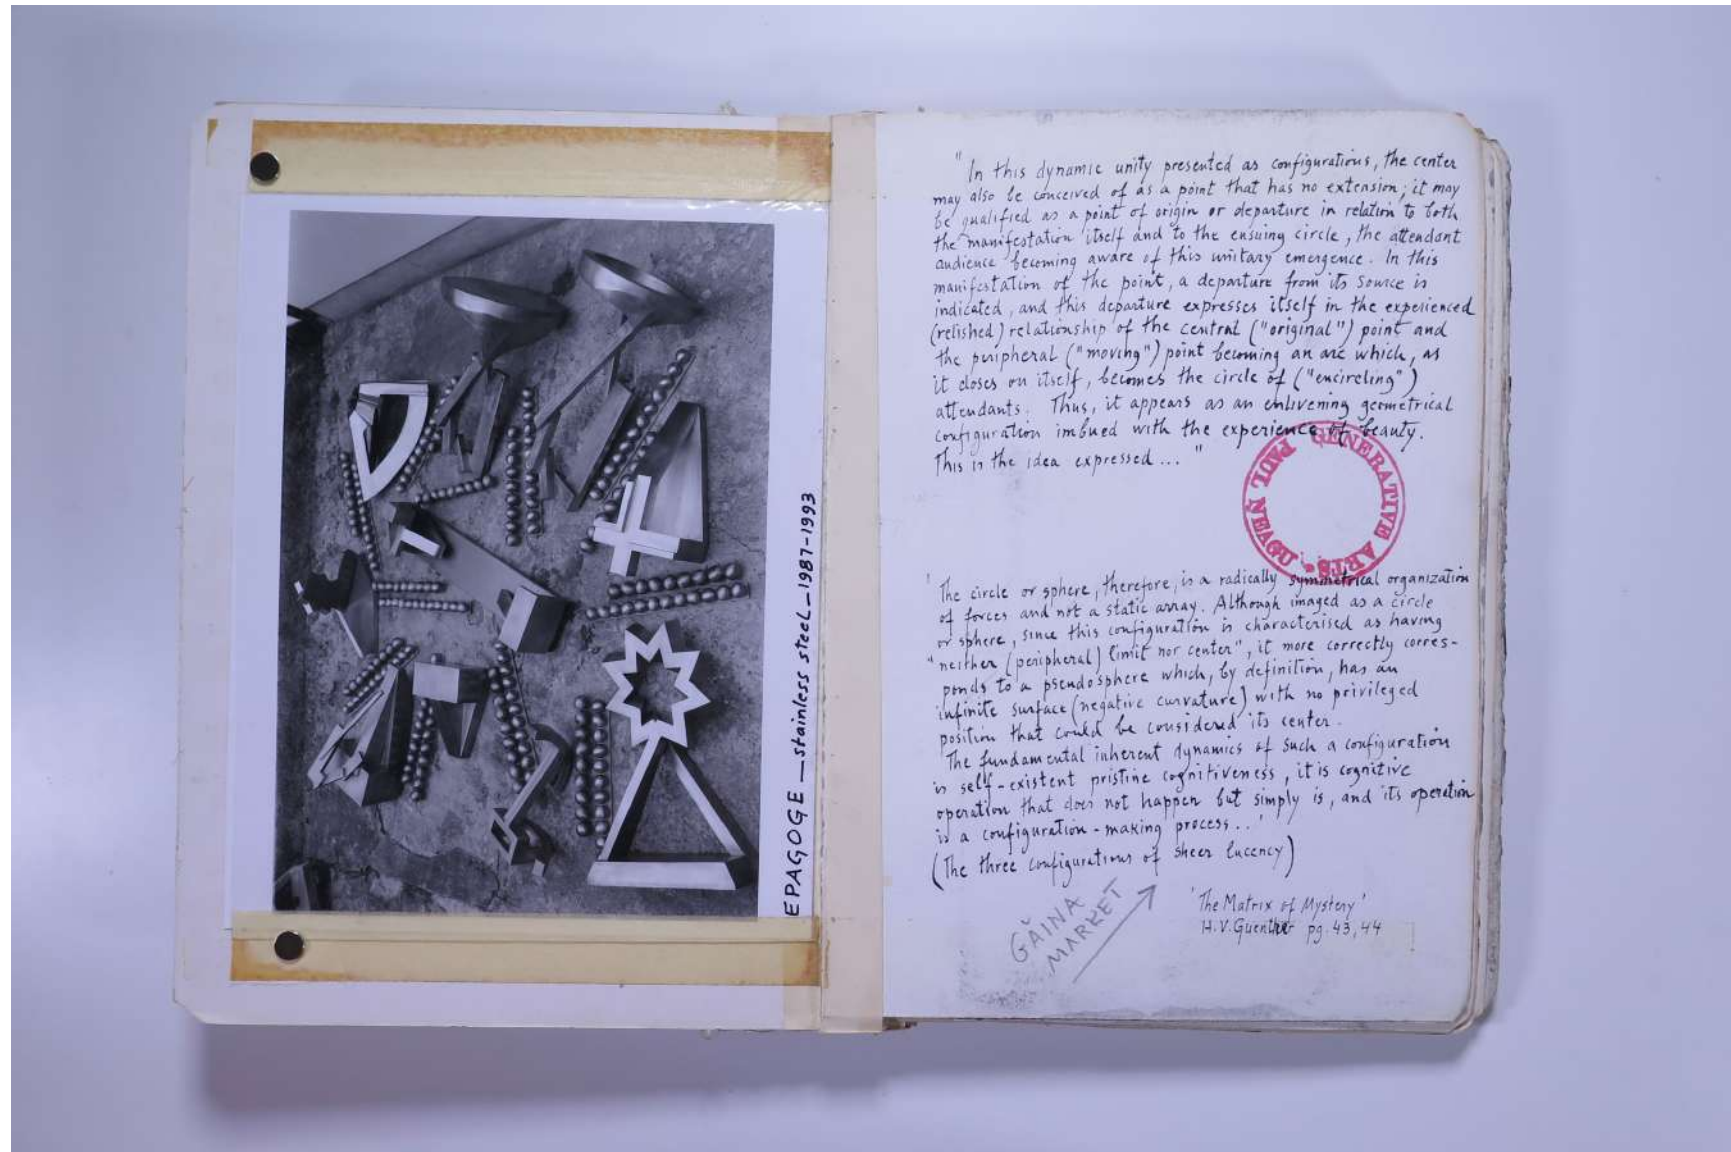 EPAGOGE — stainless steel — 1987-1993
"In this dynamic unity presented as configurations, the center
may also be conceived of as a point that has no extension; it may
be qualified as a point of origin or departure in relation to both
the manifestation itself and to the ensuing circle, the attendant
audience becoming aware of this unitary emergence. In this
manifestation of the point, a departure from its source is
indicated, and this departure expresses itself in the experienced
(relished) relationship of the central ("original") point and
the peripheral ("moving") point becoming an arc which, as
it closes on itself, becomes the circle of ("encircling")
attendants. Thus, it appears as an enlivening geometrical
configuration imbued with the experience of beauty.
This is the idea expressed... "
PAUL NEAGU • GENERATIVE ARTS •
'The circle or sphere, therefore, is a radically symmetrical organization
of forces and not a static array. Although imaged as a circle
or sphere, since this configuration is characterised as having
"neither (peripheral) limit nor center", it more correctly corres-
ponds to a pseudosphere which, by definition, has an
infinite surface (negative curvature) with no privileged
position that could be considered its center.
The fundamental inherent dynamics of such a configuration
is self-existent pristine cognitiveness, it is cognitive
operation that does not happen but simply is, and its operation
is a configuration-making process..'
(The three configurations of sheer lucency)
'The Matrix of Mystery'
H.V. Guenther pg. 43, 44
GĂINA
MARKET